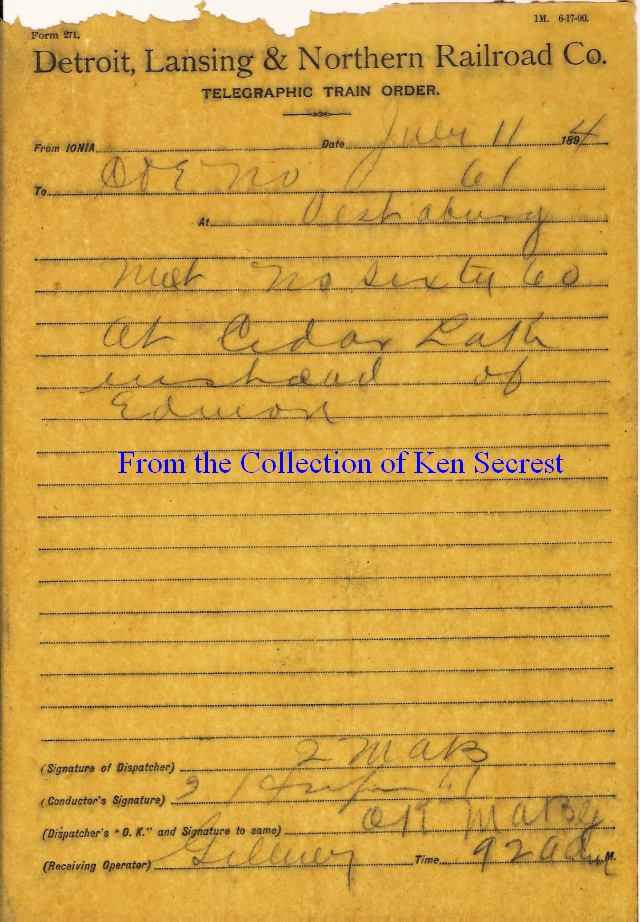 1M. 6-17-90.
Form 271.
Detroit, Lansing & Northern Railroad Co.
TELEGRAPHIC TRAIN ORDER.
From IONIA Date July 11 1894
To C & E No 61
At Vestaburg
Meet No Sixty 60
at Cedar Lake
instead of
Edmore
From the Collection of Ken Secrest
(Signature of Dispatcher) 2 MAB
(Conductor's Signature) 3 61
(Dispatcher's "O. K." and Signature to same) OK MAB
(Receiving Operator) Time 920 a M.